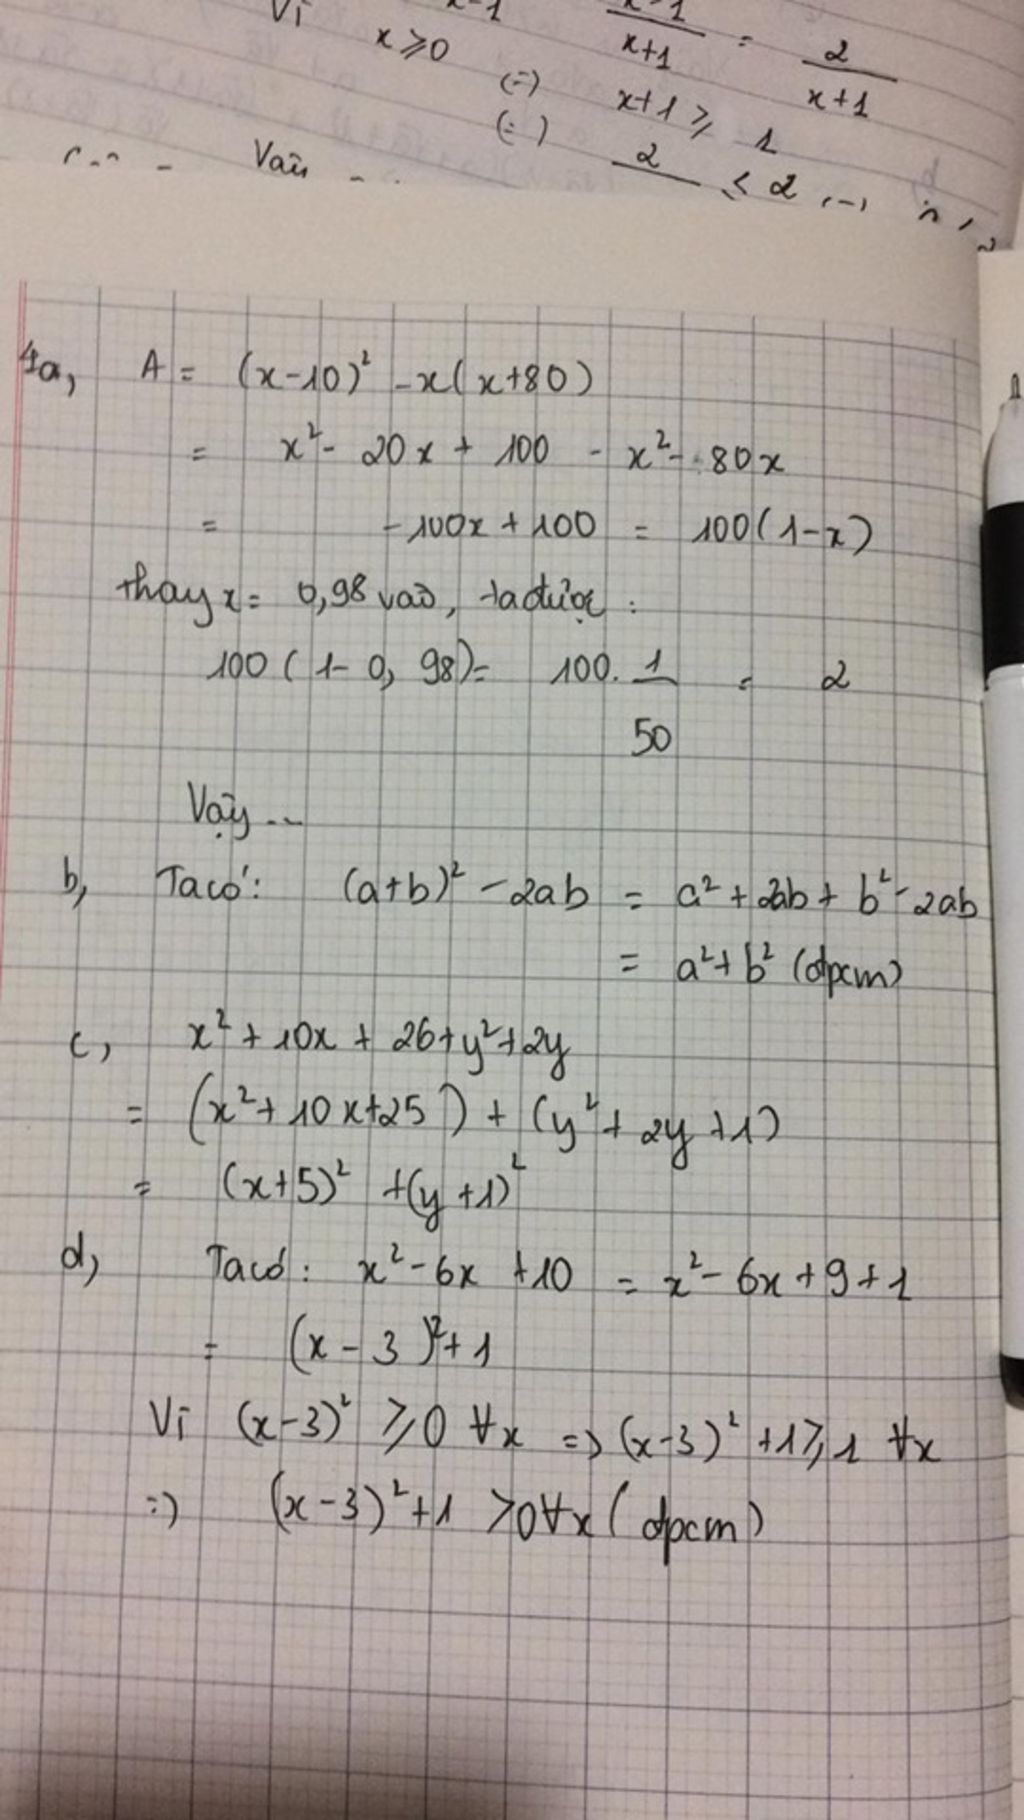 Vì x-1 x-1
x⩾0 x+1 = 2
(=) x+1⩾ 1 x+1
(=) 2
⩽ 2
4a, A = (x-10)² -x(x+80)
= x² - 20x + 100 - x² - 80x
= -100x + 100 = 100(1-x)
thay x = 0,98 vào, ta được :
100(1-0,98) = 100. 1 = 2
50
Vậy ...
b, Ta có : (a+b)² - 2ab = a² + 2ab + b² - 2ab
= a² + b² (đpcm)
c, x² + 10x + 26 + y² + 2y
= (x² + 10x + 25) + (y² + 2y + 1)
= (x+5)² + (y+1)²
d, Ta có : x² - 6x + 10 = x² - 6x + 9 + 1
= (x - 3)² + 1
Vì (x-3)² ⩾0 ∀x => (x-3)² +1⩾1 ∀x
=) (x-3)² + 1 >0∀x (đpcm)